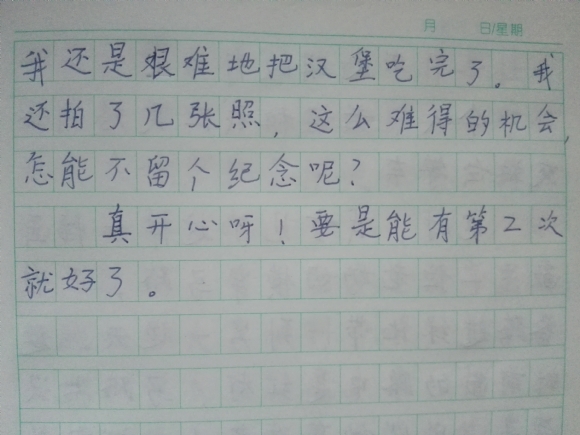 月 日/星期
我还是艰难地把汉堡吃完了。我
还拍了几张照,这么难得的机会,
怎能不留个纪念呢?
真开心呀!要是能有第2次
就好了。